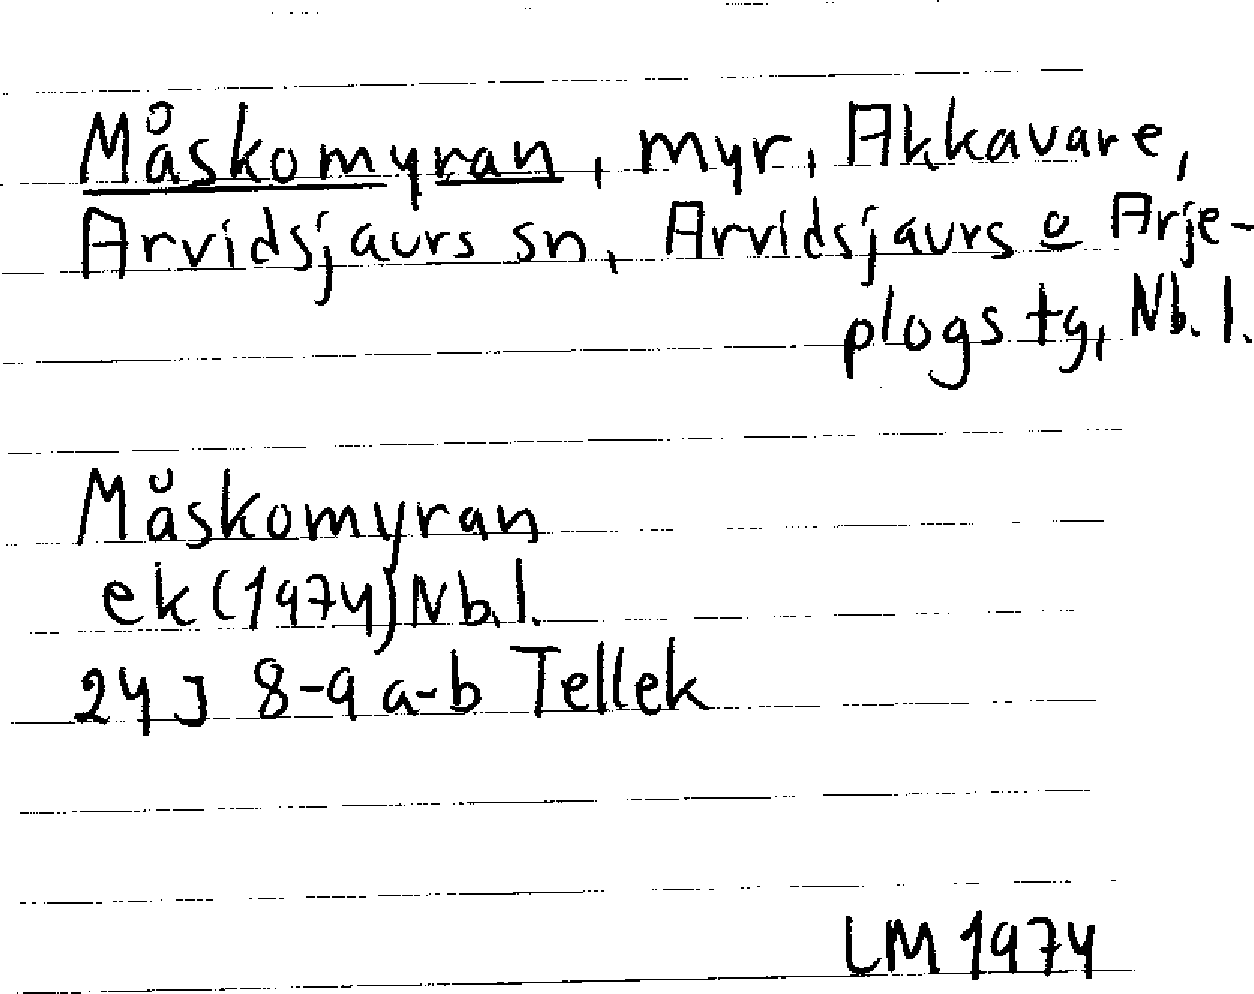 Måskomyran, myr, Akkavare,
Arvidsjaurs sn, Arvidsjaurs o Arje-
plogs tg, Nb. l.
Måskomyran
ek (1974) Nb. l.
24 J 8-9 a-b Tellek
LM 1974